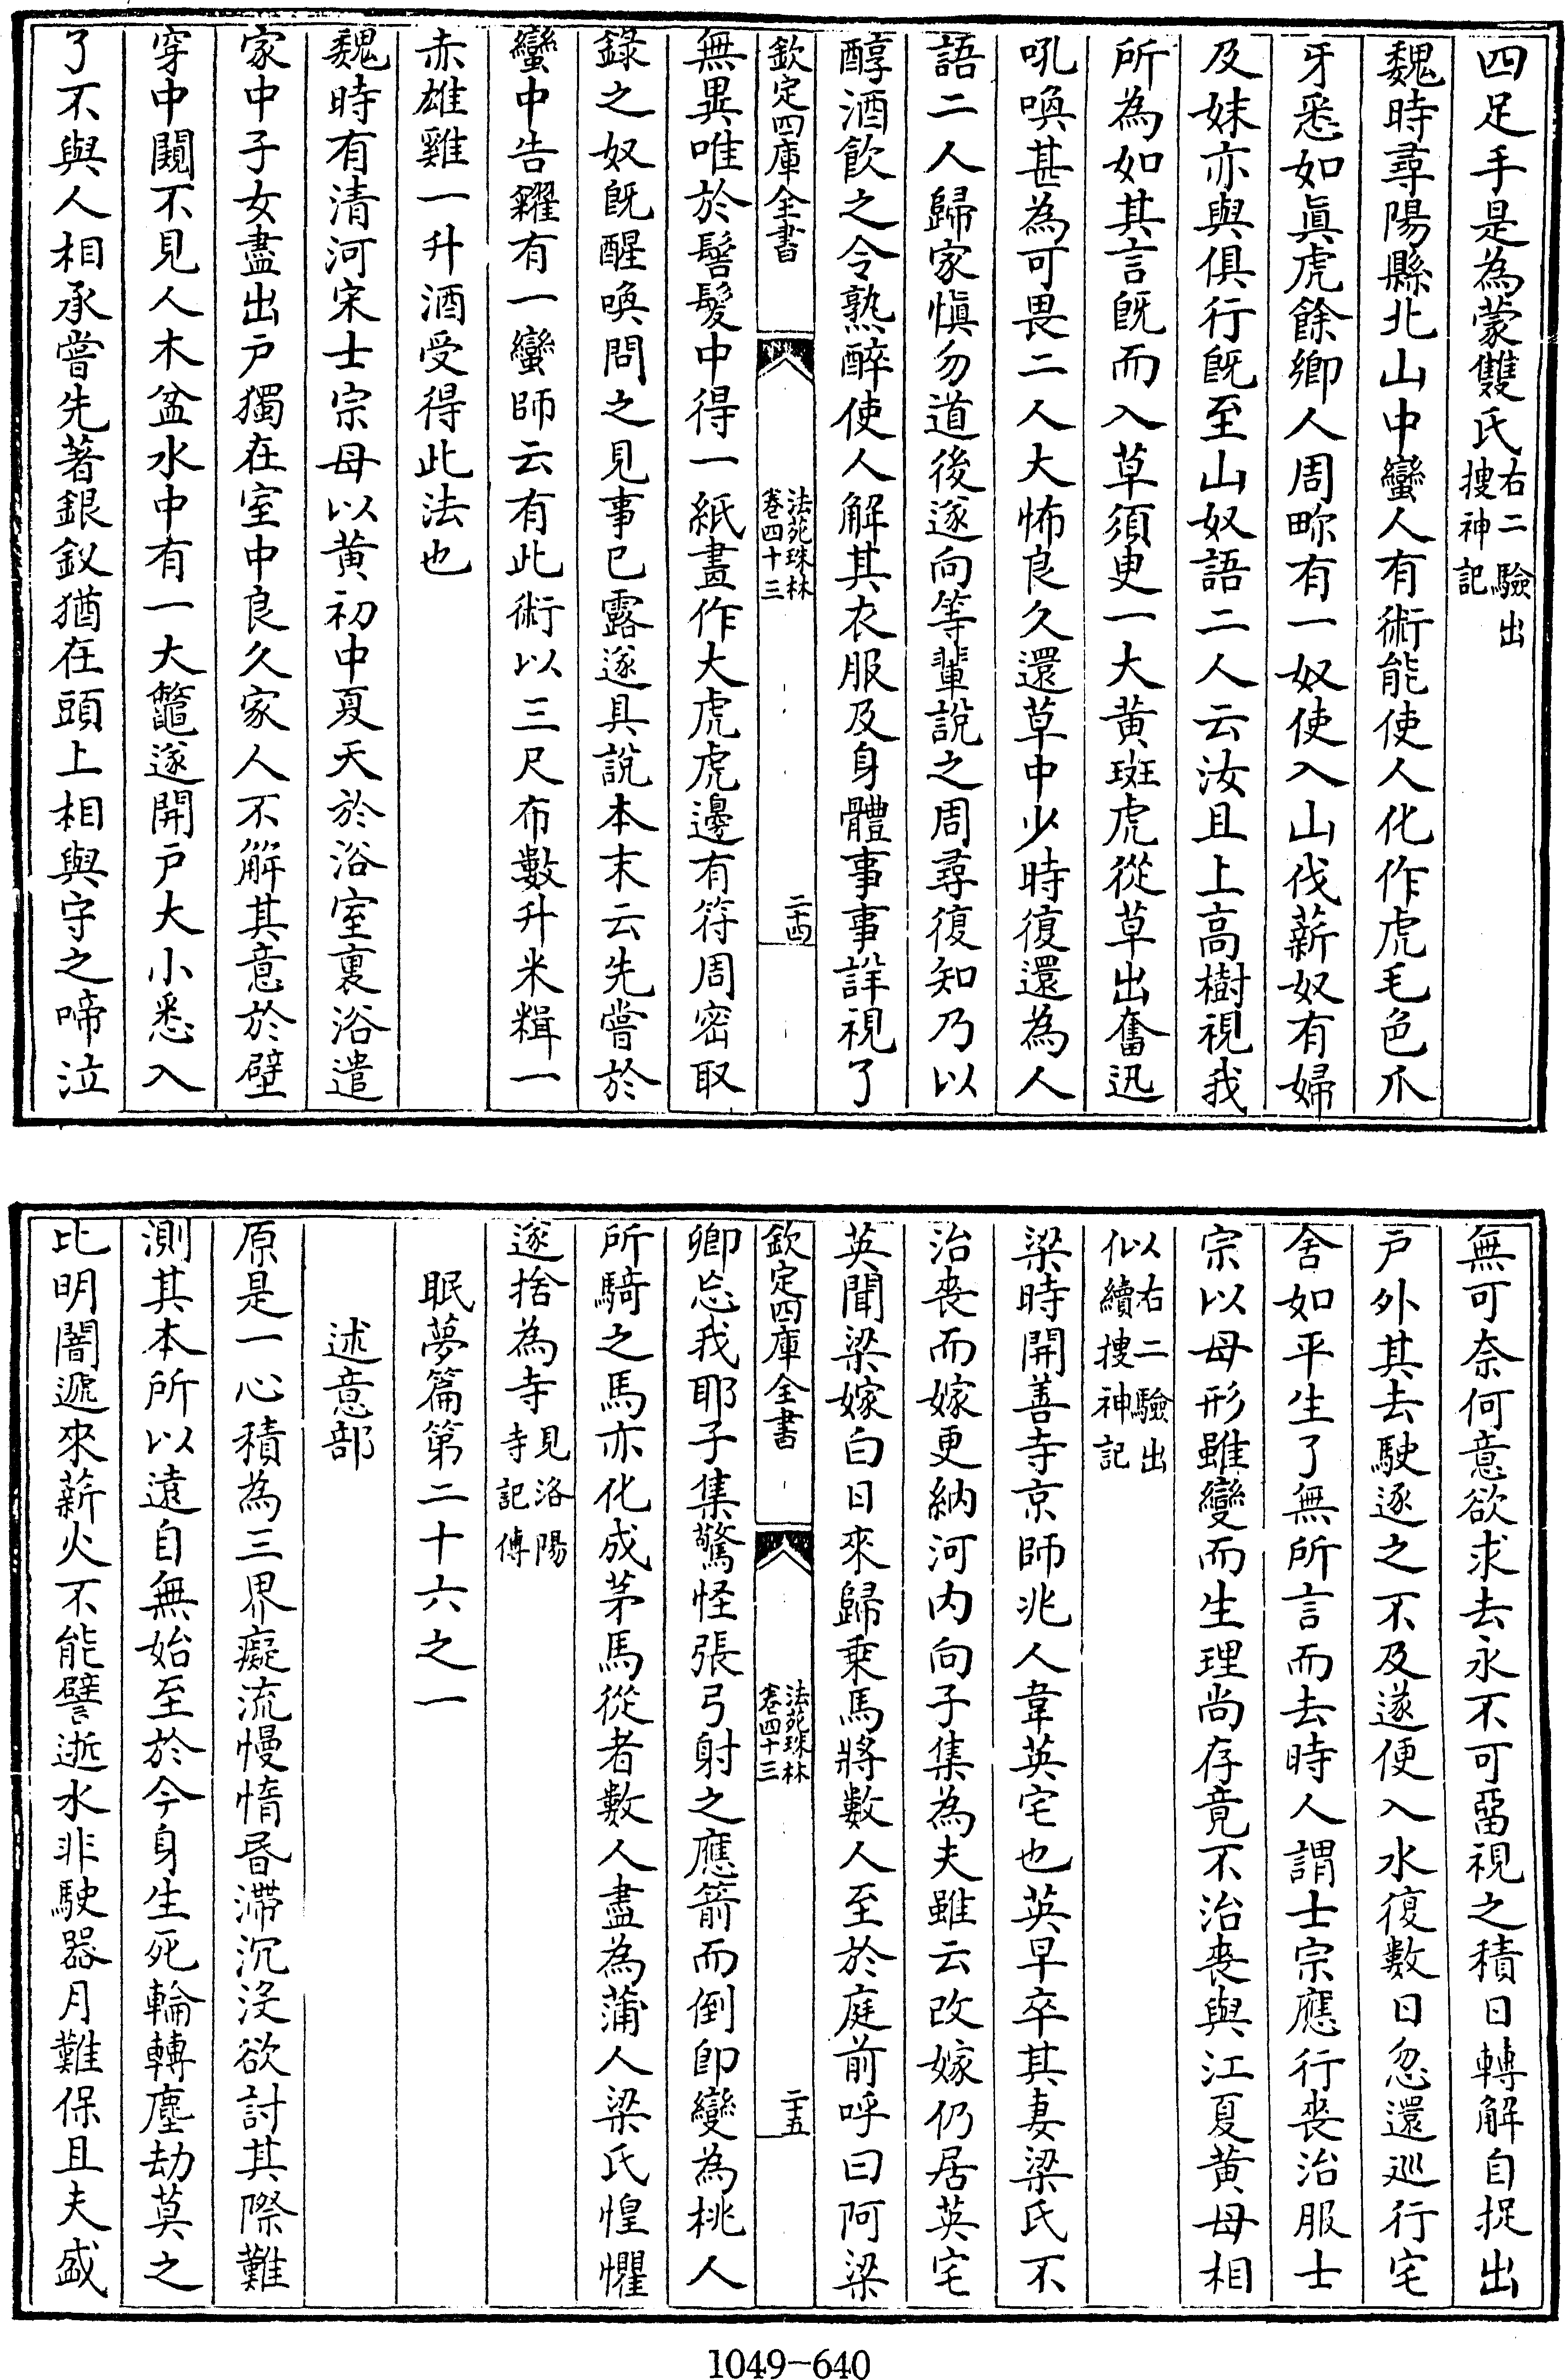 四足手是為蒙雙氏右二驗出搜神記
魏時尋陽縣北山中蠻人有術能使人化作虎毛色爪
牙悉如真虎餘鄉人周畛有一奴使入山伐薪奴有婦
及妹亦與俱行既至山奴語二人云汝且上高樹視我
所為如其言既而入草須臾一大黃斑虎從草出奮迅
吼喚甚為可畏二人大怖良久還草中少時復還為人
語二人歸家慎勿道後遂向等輩說之周尋復知乃以
醇酒飲之令熟醉使人解其衣服及身體事事詳視了
欽定四庫全書 法苑珠林卷四十三 二十四
無異唯於髻髮中得一紙畫作大虎虎邊有符周密取
錄之奴既醒喚問之見事已露遂具說本末云先嘗於
蠻中告糴有一蠻師云有此術以三尺布數升米糈一
赤雄雞一升酒受得此法也
魏時有清河宋士宗母以黃初中夏天於浴室裏浴遣
家中子女盡出戶獨在室中良久家人不解其意於壁
穿中闚不見人木盆水中有一大鼈遂開戶大小悉入
了不與人相承嘗先著銀釵猶在頭上相與守之啼泣
無可奈何意欲求去永不可留視之積日轉解自捉出
戶外其去駛逐之不及遂便入水復數日忽還巡行宅
舍如平生了無所言而去時人謂士宗應行喪治服士
宗以母形雖變而生理尚存竟不治喪與江夏黃母相
似以右二驗出續搜神記
梁時開善寺京師兆人韋英宅也英早卒其妻梁氏不
治喪而嫁更納河內向子集為夫雖云改嫁仍居英宅
英聞梁嫁白日來歸乘馬將數人至於庭前呼曰阿梁
欽定四庫全書 法苑珠林卷四十三 二十五
卿忘我耶子集驚怪張弓射之應箭而倒即變為桃人
所騎之馬亦化成茅馬從者數人盡為蒲人梁氏惶懼
遂捨為寺見洛陽寺記傳
眠夢篇第二十六之一
述意部
原是一心積為三界癡流慢惰昏滯沉沒欲討其際難
測其本所以遠自無始至於今身生死輪轉塵劫莫之
比明闇遞來薪火不能譬逝水非駛器月難保且夫盛
1049-640